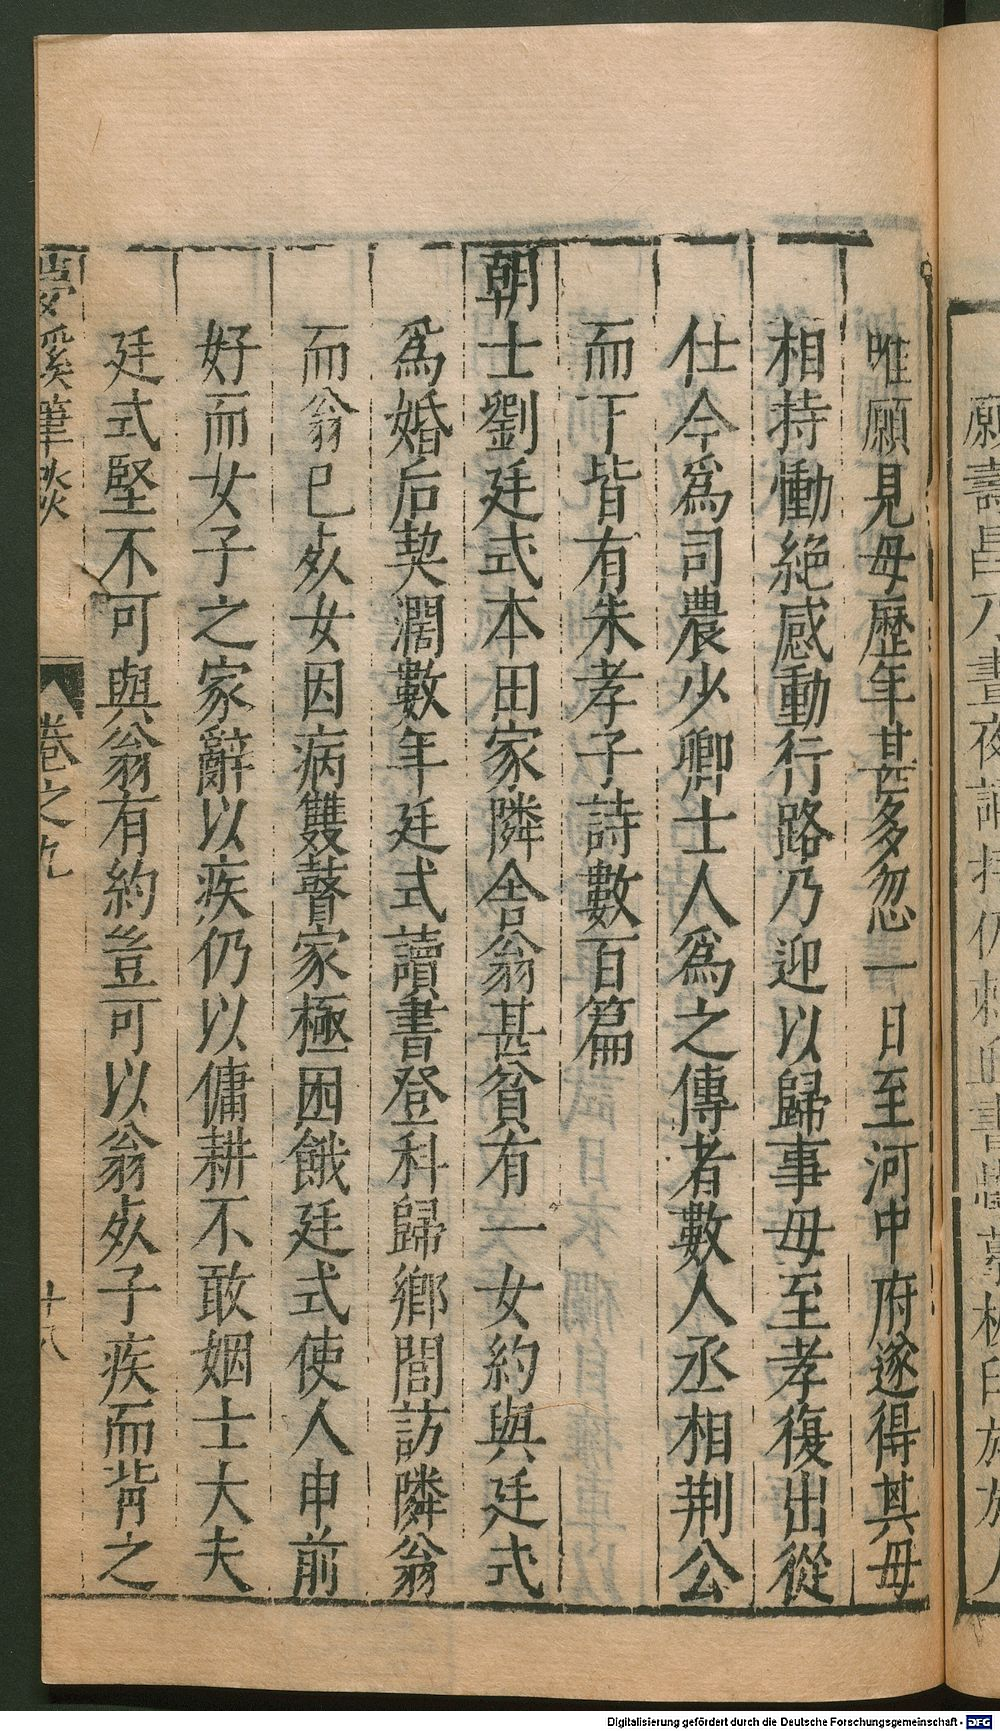 唯願見母歷年甚多忽一日至河中府遂得其母
相持慟絶感動行路乃迎以歸事母至孝復出從
仕今爲司農少卿士人爲之傳者數人丞相荆公
而下皆有朱孝子詩數百篇
朝士劉廷式本田家隣舎翁甚貧有一女約與廷式
爲婚后契濶數年廷式讀書登科歸鄉閭訪隣翁
而翁已歿女因病雙瞽家極困餓廷式使人申前
好而女子之家辭以疾仍以傭耕不敢姻士大夫
廷式堅不可與翁有約豈可以翁歿子疾而背之
夢溪筆談 卷之九 十八
Digitalisierung gefördert durch die Deutsche Forschungsgemeinschaft - DFG